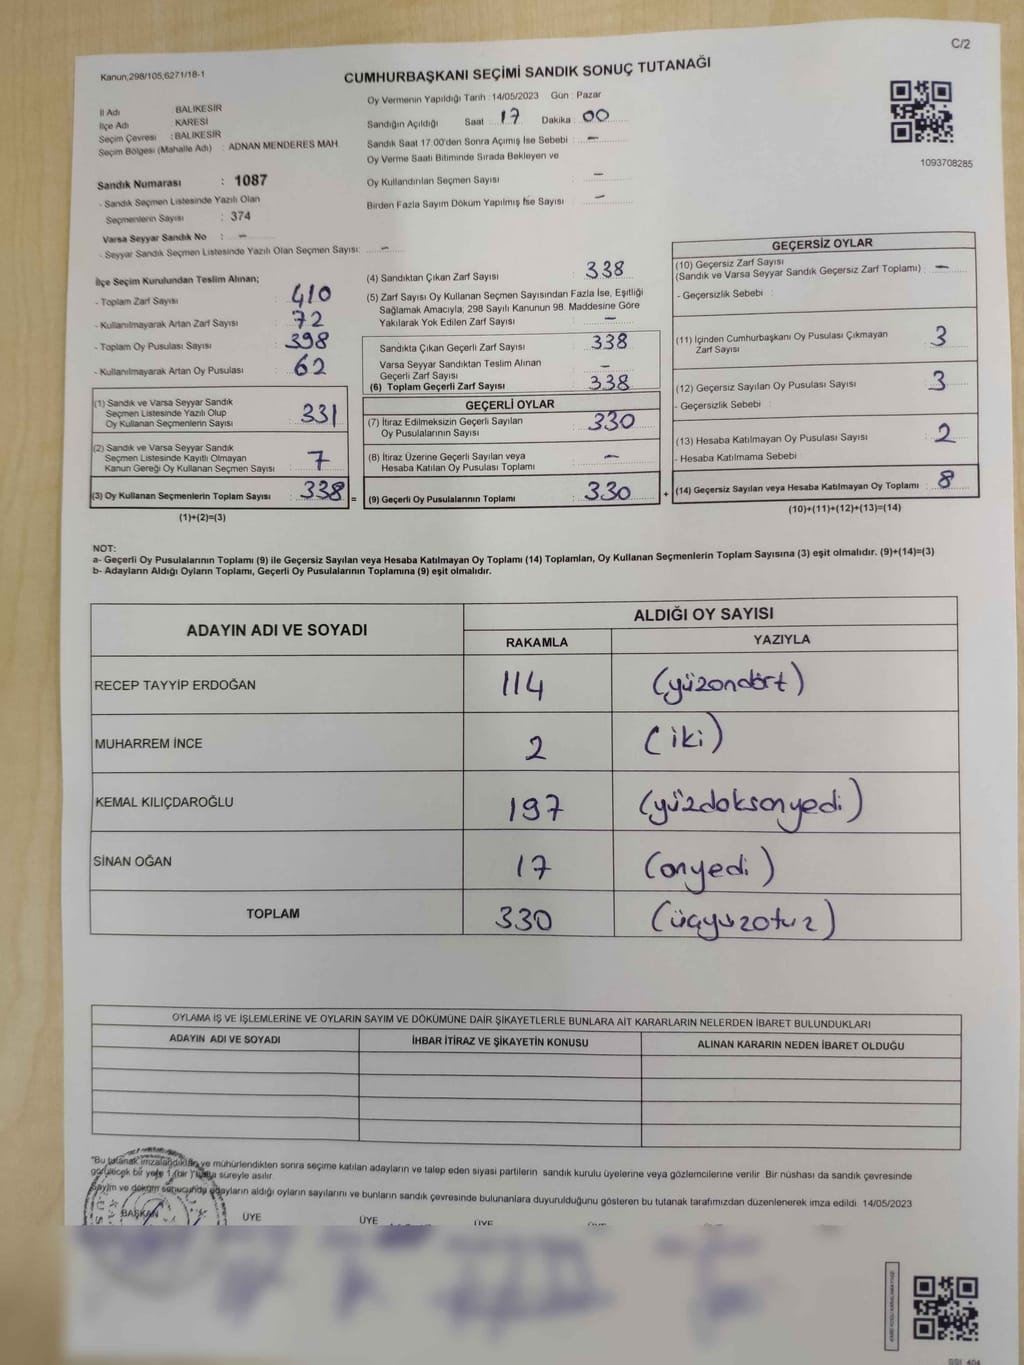 C/2
Kanun,298/105,6271/18-1
CUMHURBAŞKANI SEÇİMİ SANDIK SONUÇ TUTANAĞI
1093708285
İl Adı : BALIKESİR
İlçe Adı : KARESİ
Seçim Çevresi : BALIKESİR
Seçim Bölgesi (Mahalle Adı) : ADNAN MENDERES MAH.
Sandık Numarası : 1087
- Sandık Seçmen Listesinde Yazılı Olan
Seçmenlerin Sayısı : 374
Varsa Seyyar Sandık No : -
- Seyyar Sandık Seçmen Listesinde Yazılı Olan Seçmen Sayısı: -
Oy Vermenin Yapıldığı Tarih : 14/05/2023 Gün : Pazar
Sandığın Açıldığı Saat : 17 Dakika : 00
Sandık Saat 17.00'den Sonra Açımış İse Sebebi : -
Oy Verme Saati Bitiminde Sırada Bekleyen ve
Oy Kullandırılan Seçmen Sayısı : -
Birden Fazla Sayım Döküm Yapılmış İse Sayısı : -
İlçe Seçim Kurulundan Teslim Alınan;
- Toplam Zarf Sayısı : 410
- Kullanılmayarak Artan Zarf Sayısı : 72
- Toplam Oy Pusulası Sayısı : 398
- Kullanılmayarak Artan Oy Pusulası : 62
(1) Sandık ve Varsa Seyyar Sandık
Seçmen Listesinde Yazılı Olup
Oy Kullanan Seçmenlerin Sayısı : 331
(2) Sandık ve Varsa Seyyar Sandık
Seçmen Listesinde Kayıtlı Olmayan
Kanun Gereği Oy Kullanan Seçmen Sayısı : 7
(3) Oy Kullanan Seçmenlerin Toplam Sayısı : 338 =
(1)+(2)=(3)
(4) Sandıktan Çıkan Zarf Sayısı : 338
(5) Zarf Sayısı Oy Kullanan Seçmen Sayısından Fazla İse, Eşitliği
Sağlamak Amacıyla, 298 Sayılı Kanunun 98. Maddesine Göre
Yakılarak Yok Edilen Zarf Sayısı : -
Sandıkta Çıkan Geçerli Zarf Sayısı : 338
Varsa Seyyar Sandıktan Teslim Alınan
Geçerli Zarf Sayısı : -
(6) Toplam Geçerli Zarf Sayısı : 338
GEÇERLİ OYLAR
(7) İtiraz Edilmeksizin Geçerli Sayılan
Oy Pusulalarının Sayısı : 330
(8) İtiraz Üzerine Geçerli Sayılan veya
Hesaba Katılan Oy Pusulası Toplamı : -
(9) Geçerli Oy Pusulalarının Toplamı : 330 +
GEÇERSİZ OYLAR
(10) Geçersiz Zarf Sayısı
(Sandık ve Varsa Seyyar Sandık Geçersiz Zarf Toplamı) : -
- Geçersizlik Sebebi :
(11) İçinden Cumhurbaşkanı Oy Pusulası Çıkmayan
Zarf Sayısı : 3
(12) Geçersiz Sayılan Oy Pusulası Sayısı : 3
- Geçersizlik Sebebi :
(13) Hesaba Katılmayan Oy Pusulası Sayısı : 2
- Hesaba Katılmama Sebebi
(14) Geçersiz Sayılan veya Hesaba Katılmayan Oy Toplamı : 8
(10)+(11)+(12)+(13)=(14)
NOT:
a- Geçerli Oy Pusulalarının Toplamı (9) ile Geçersiz Sayılan veya Hesaba Katılmayan Oy Toplamı (14) Toplamları, Oy Kullanan Seçmenlerin Toplam Sayısına (3) eşit olmalıdır. (9)+(14)=(3)
b- Adayların Aldığı Oyların Toplamı, Geçerli Oy Pusulalarının Toplamına (9) eşit olmalıdır.
ADAYIN ADI VE SOYADI
ALDIĞI OY SAYISI
RAKAMLA YAZIYLA
RECEP TAYYİP ERDOĞAN 114 (yüzondört)
MUHARREM İNCE 2 (iki)
KEMAL KILIÇDAROĞLU 197 (yüzdoksanyedi)
SİNAN OĞAN 17 (onyedi)
TOPLAM 330 (üçyüzotuz)
OYLAMA İŞ VE İŞLEMLERİNE VE OYLARIN SAYIM VE DÖKÜMÜNE DAİR ŞİKAYETLERLE BUNLARA AİT KARARLARIN NELERDEN İBARET BULUNDUKLARI
ADAYIN ADI VE SOYADI İHBAR İTİRAZ VE ŞİKAYETİN KONUSU ALINAN KARARIN NEDEN İBARET OLDUĞU
"Bu tutanak imzalandıktan ve mühürlendikten sonra seçime katılan adayların ve talep eden siyasi partilerin sandık kurulu üyelerine veya gözlemcilerine verilir. Bir nüshası da sandık çevresinde
görülecek bir yere 1 (bir) hafta süreyle asılır.
Sayım ve döküm sonucunda adayların aldığı oyların sayılarını ve bunların sandık çevresinde bulunanlara duyurulduğunu gösteren bu tutanak tarafımızdan düzenlenerek imza edildi. 14/05/2023
BAŞKAN ÜYE ÜYE ÜYE